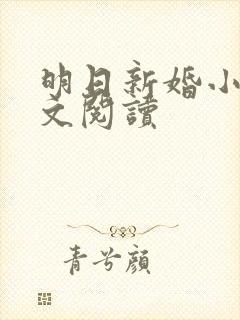 明日新婚小
文閱讀
青兮顏